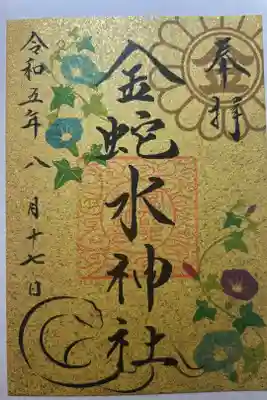 奉拝
金
金蛇水神社
令和五年八月十七日